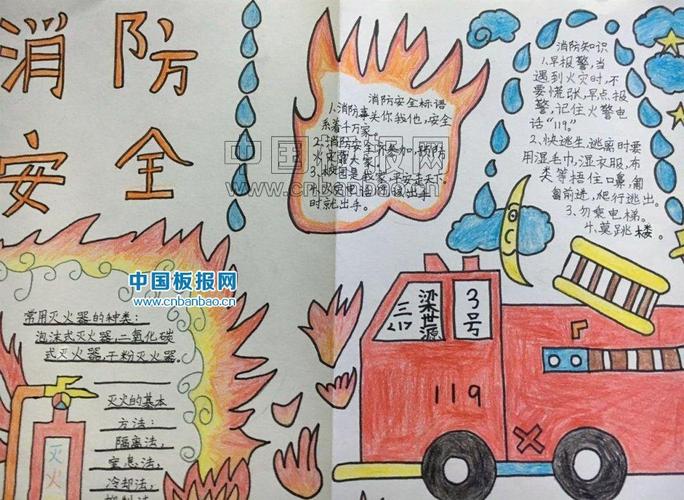 消防
安全
消防安全标语
1.消防事关你我他,安全
系着千万家。
2.消防安全
火灾靠大家
3.校园是我家,平安走天下。
时就出手。
消防知识
1.早报警,当
遇到火灾时,不
要慌张,早点报
警,记住火警电
话"119"。
2.快逃生,逃离时要
用湿毛巾,湿衣服,布
类等捂住口鼻,匍
匐前进,爬行逃出。
3.勿乘电梯。
4.莫跳楼。
中国板报网
www.cnbanbao.cn
常用灭火器的种类:
泡沫式灭火器,二氧化碳
式灭火器,干粉灭火器。
灭火的基本
方法:
隔离法,
窒息法,
冷却法,
灭火
三
217
梁世源
3号
119